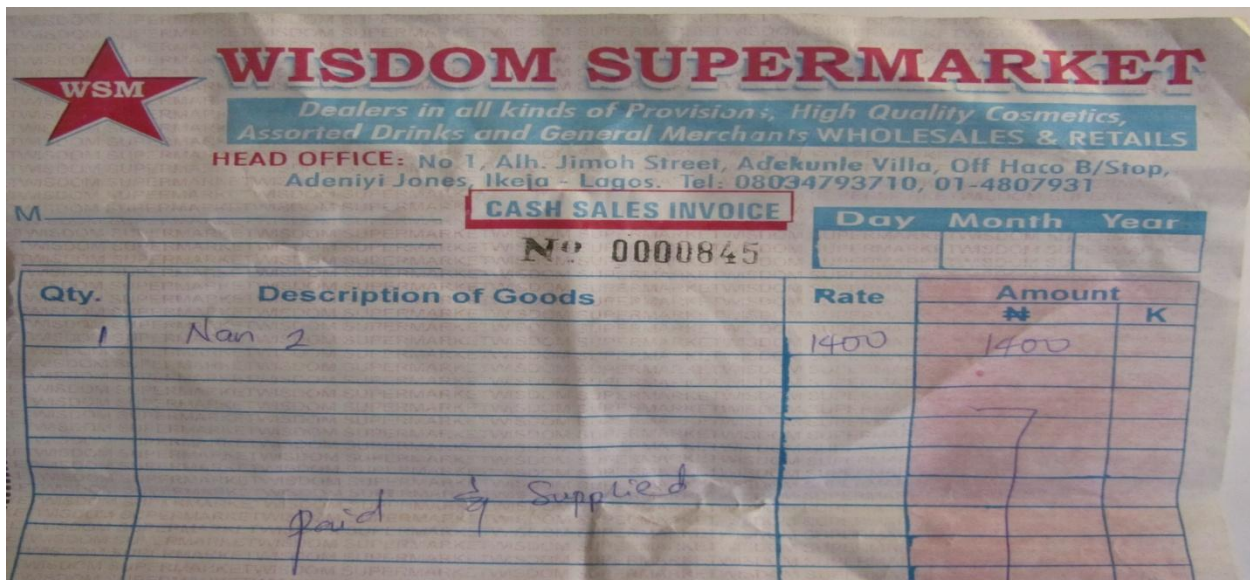 WSM
WISDOM SUPERMARKET
Dealers in all kinds of Provisions, High Quality Cosmetics,
Assorted Drinks and General Merchants WHOLESALES & RETAILS
HEAD OFFICE: No 1, Alh. Jimoh Street, Adekunle Villa, Off Haco B/Stop,
Adeniyi Jones, Ikeja - Lagos. Tel: 08034793710, 01-4807931
M
CASH SALES INVOICE
Day Month Year
Nº 0000845
Qty. Description of Goods Rate Amount
₦ K
1 Nan 2 1400 1400
Paid & Supplied